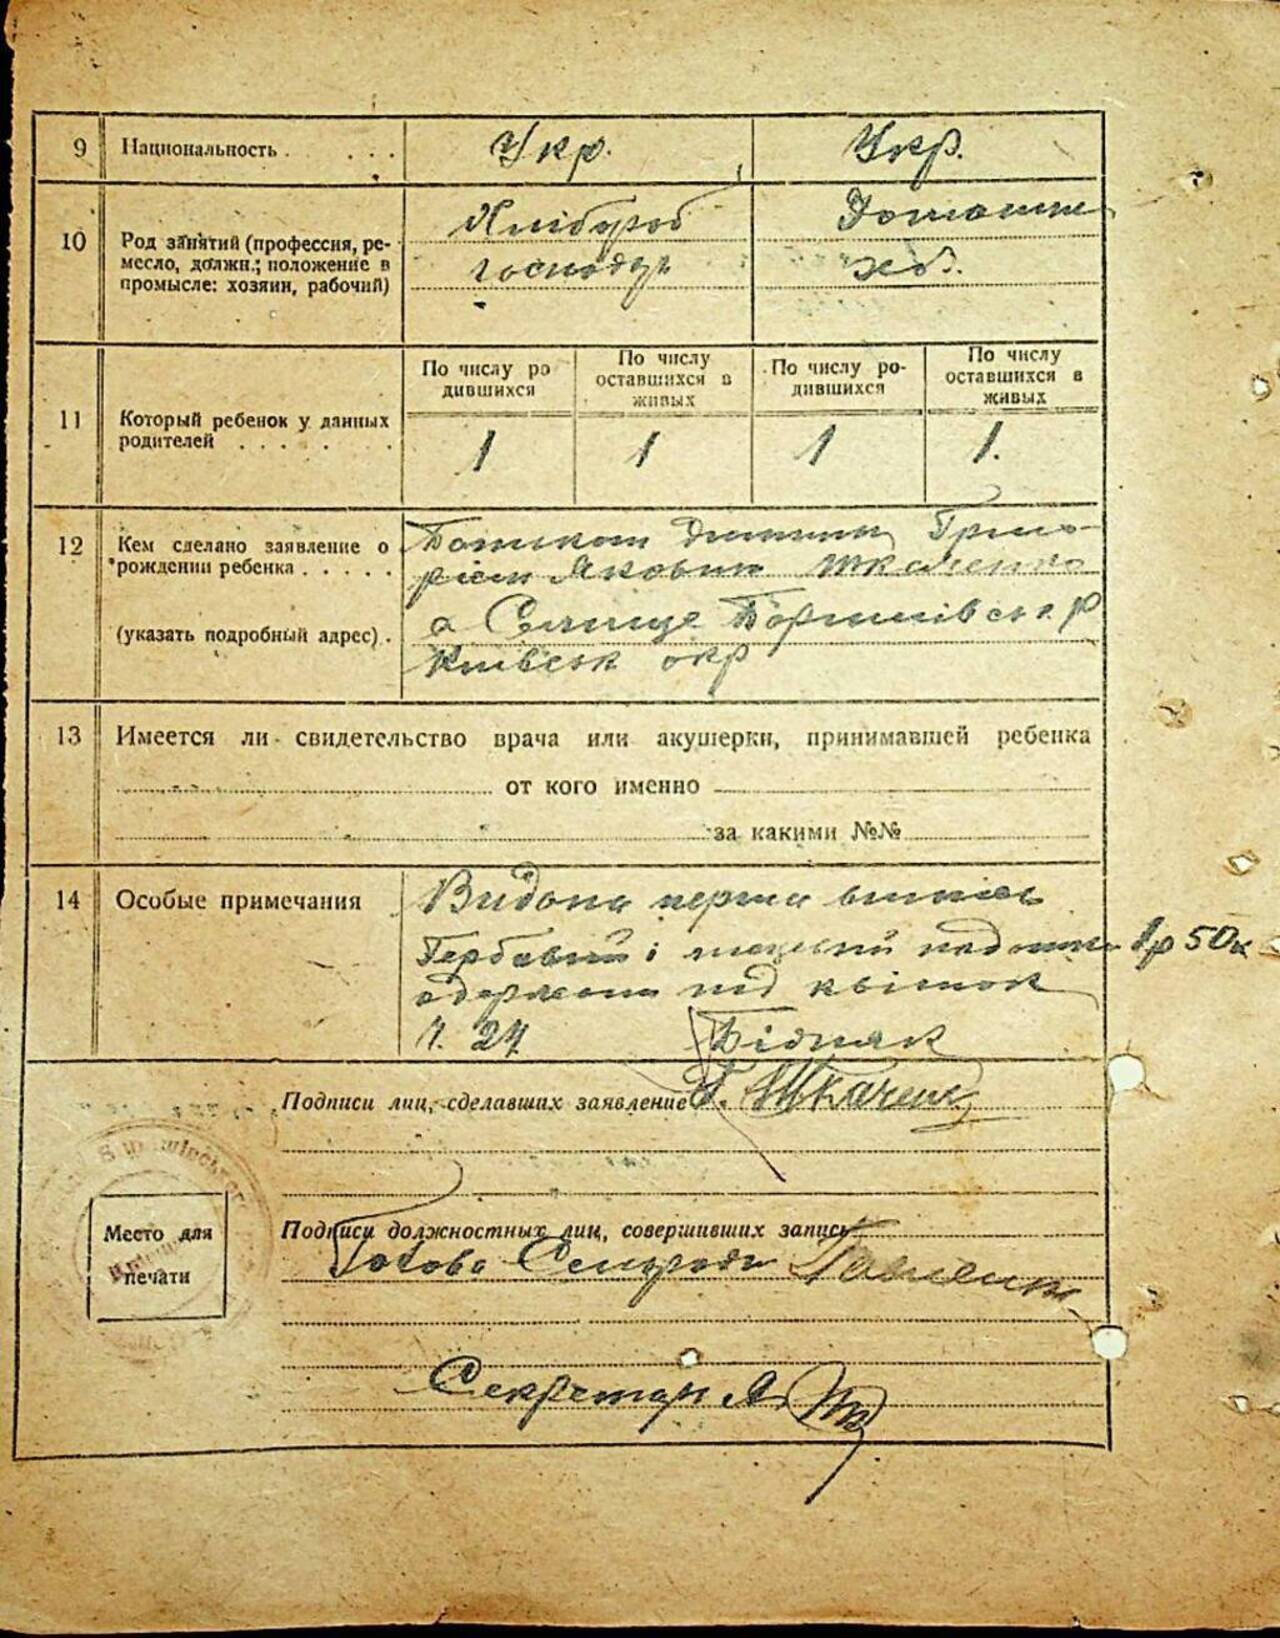 9 Национальность . . . . Укр. Укр.
10 Род занятий (профессия, ре-
месло, должн.; положение в
промысле: хозяин, рабочий)
Хлібороб
господар
Домашнє
хоз.
11 Который ребенок у данных
родителей . . . . . .
По числу ро
дившихся
По числу
оставшихся в
живых
По числу ро-
дившихся
По числу
оставшихся в
живых
1 1 1 1.
12 Кем сделано заявление о
рождении ребенка . . . . .
(указать подробный адрес) .
Батьком дитини Григо-
рієм Яковин Ткаченко
с Селище Баришівськ. р
Київськ окр
13 Имеется ли свидетельство врача или акушерки, принимавшей ребенка
от кого именно
за какими №№
14 Особые примечания
Видана перша випись
Гербовий і 1р 50к
одержано під квіток
ч. 24
Бідняк
Подписи лиц, сделавших заявление Г. Ткаченко
Место для
печати
Подписи должностных лиц, совершивших запись
Голова Сельради
Секретар